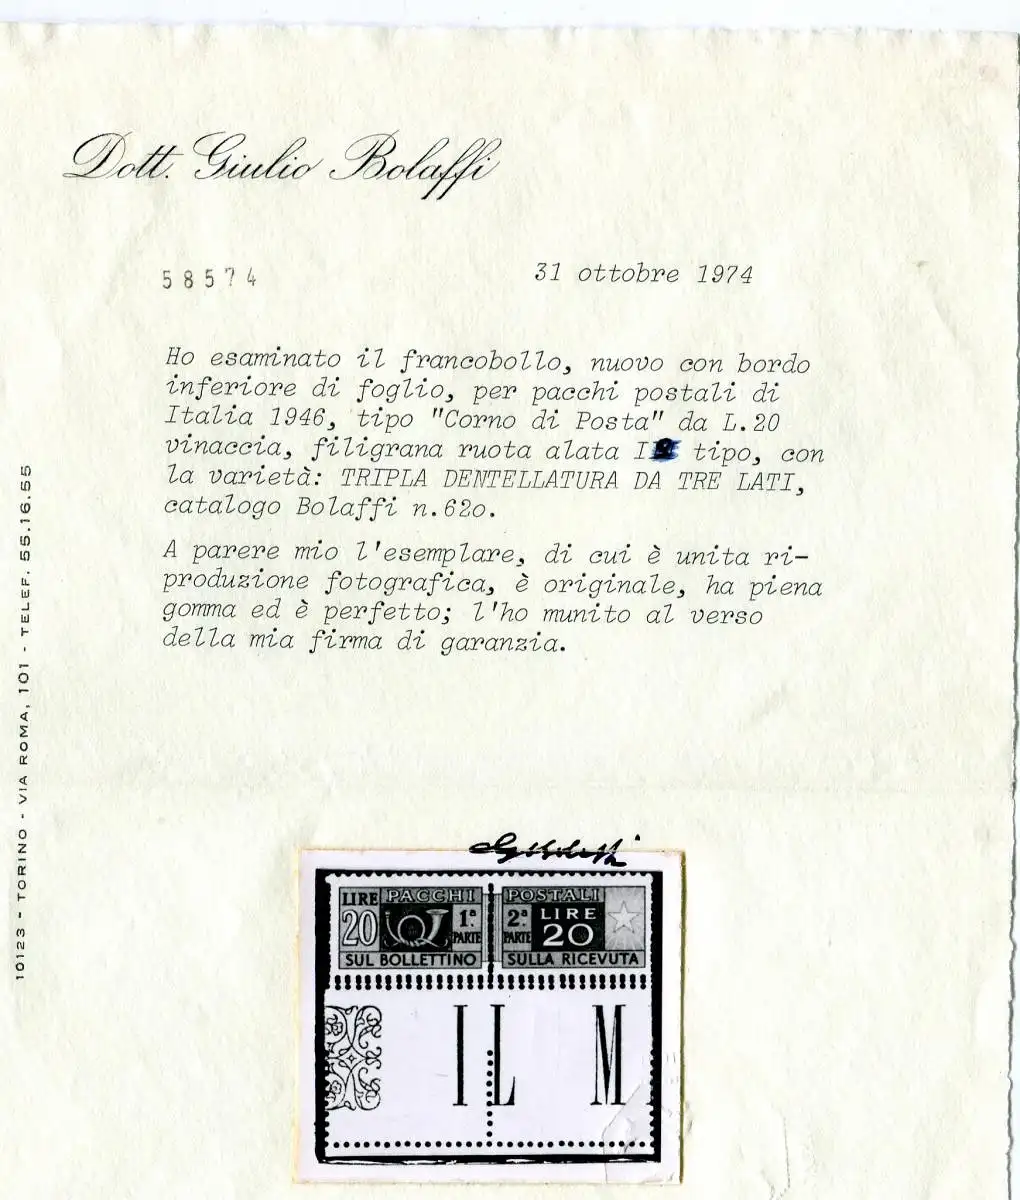 Dott. Giulio Bolaffi
58574
31 ottobre 1974
Ho esaminato il francobollo, nuovo con bordo
inferiore di foglio, per pacchi postali di
Italia 1946, tipo "Corno di Posta" da L.20
vinaccia, filigrana ruota alata I tipo, con
la varietà: TRIPLA DENTELLATURA DA TRE LATI,
catalogo Bolaffi n.62o.
A parere mio l'esemplare, di cui è unita ri-
produzione fotografica, è originale, ha piena
gomma ed è perfetto; l'ho munito al verso
della mia firma di garanzia.
10123 - TORINO - VIA ROMA, 101 - TELEF. 55.16.55
LIRE PACCHI POSTALI
20 1ª PARTE 2ª PARTE LIRE 20
SUL BOLLETTINO SULLA RICEVUTA
IL M